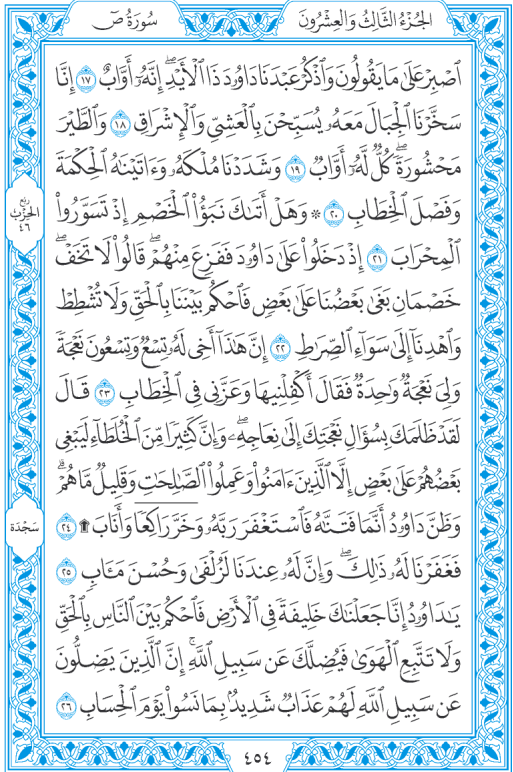 الجُزْءُ الثَّالِثُ وَالعِشْرُونَ
سُورَةُ صٓ
ٱصْبِرْ عَلَىٰ مَا يَقُولُونَ وَٱذْكُرْ عَبْدَنَا دَاوُۥدَ ذَا ٱلْأَيْدِ ۖ إِنَّهُۥٓ أَوَّابٌ ١٧ إِنَّا
سَخَّرْنَا ٱلْجِبَالَ مَعَهُۥ يُسَبِّحْنَ بِٱلْعَشِىِّ وَٱلْإِشْرَاقِ ١٨ وَٱلطَّيْرَ
مَحْشُورَةً ۖ كُلٌّ لَّهُۥٓ أَوَّابٌ ١٩ وَشَدَدْنَا مُلْكَهُۥ وَءَاتَيْنَٰهُ ٱلْحِكْمَةَ
وَفَصْلَ ٱلْخِطَابِ ٢٠ ۞ وَهَلْ أَتَىٰكَ نَبَؤُا۟ ٱلْخَصْمِ إِذْ تَسَوَّرُوا۟
ٱلْمِحْرَابَ ٢١ إِذْ دَخَلُوا۟ عَلَىٰ دَاوُۥدَ فَفَزِعَ مِنْهُمْ ۖ قَالُوا۟ لَا تَخَفْ ۖ
خَصْمَانِ بَغَىٰ بَعْضُنَا عَلَىٰ بَعْضٍ فَٱحْكُم بَيْنَنَا بِٱلْحَقِّ وَلَا تُشْطِطْ
وَٱهْدِنَآ إِلَىٰ سَوَآءِ ٱلصِّرَٰطِ ٢٢ إِنَّ هَٰذَآ أَخِى لَهُۥ تِسْعٌ وَتِسْعُونَ نَعْجَةً
وَلِىَ نَعْجَةٌ وَٰحِدَةٌ فَقَالَ أَكْفِلْنِيهَا وَعَزَّنِى فِى ٱلْخِطَابِ ٢٣ قَالَ
لَقَدْ ظَلَمَكَ بِسُؤَالِ نَعْجَتِكَ إِلَىٰ نِعَاجِهِۦ ۖ وَإِنَّ كَثِيرًا مِّنَ ٱلْخُلَطَآءِ لَيَبْغِى
بَعْضُهُمْ عَلَىٰ بَعْضٍ إِلَّا ٱلَّذِينَ ءَامَنُوا۟ وَعَمِلُوا۟ ٱلصَّٰلِحَٰتِ وَقَلِيلٌ مَّا هُمْ ۗ
وَظَنَّ دَاوُۥدُ أَنَّمَا فَتَنَّٰهُ فَٱسْتَغْفَرَ رَبَّهُۥ وَخَرَّ رَاكِعًا وَأَنَابَ ۩ ٢٤
فَغَفَرْنَا لَهُۥ ذَٰلِكَ ۖ وَإِنَّ لَهُۥ عِندَنَا لَزُلْفَىٰ وَحُسْنَ مَـَٔابٍ ٢٥
يَٰدَاوُۥدُ إِنَّا جَعَلْنَٰكَ خَلِيفَةً فِى ٱلْأَرْضِ فَٱحْكُم بَيْنَ ٱلنَّاسِ بِٱلْحَقِّ
وَلَا تَتَّبِعِ ٱلْهَوَىٰ فَيُضِلَّكَ عَن سَبِيلِ ٱللَّهِ ۚ إِنَّ ٱلَّذِينَ يَضِلُّونَ
عَن سَبِيلِ ٱللَّهِ لَهُمْ عَذَابٌ شَدِيدٌۢ بِمَا نَسُوا۟ يَوْمَ ٱلْحِسَابِ ٢٦
ربع
الحزب
٤٦
سَجْدَة
٤٥٤